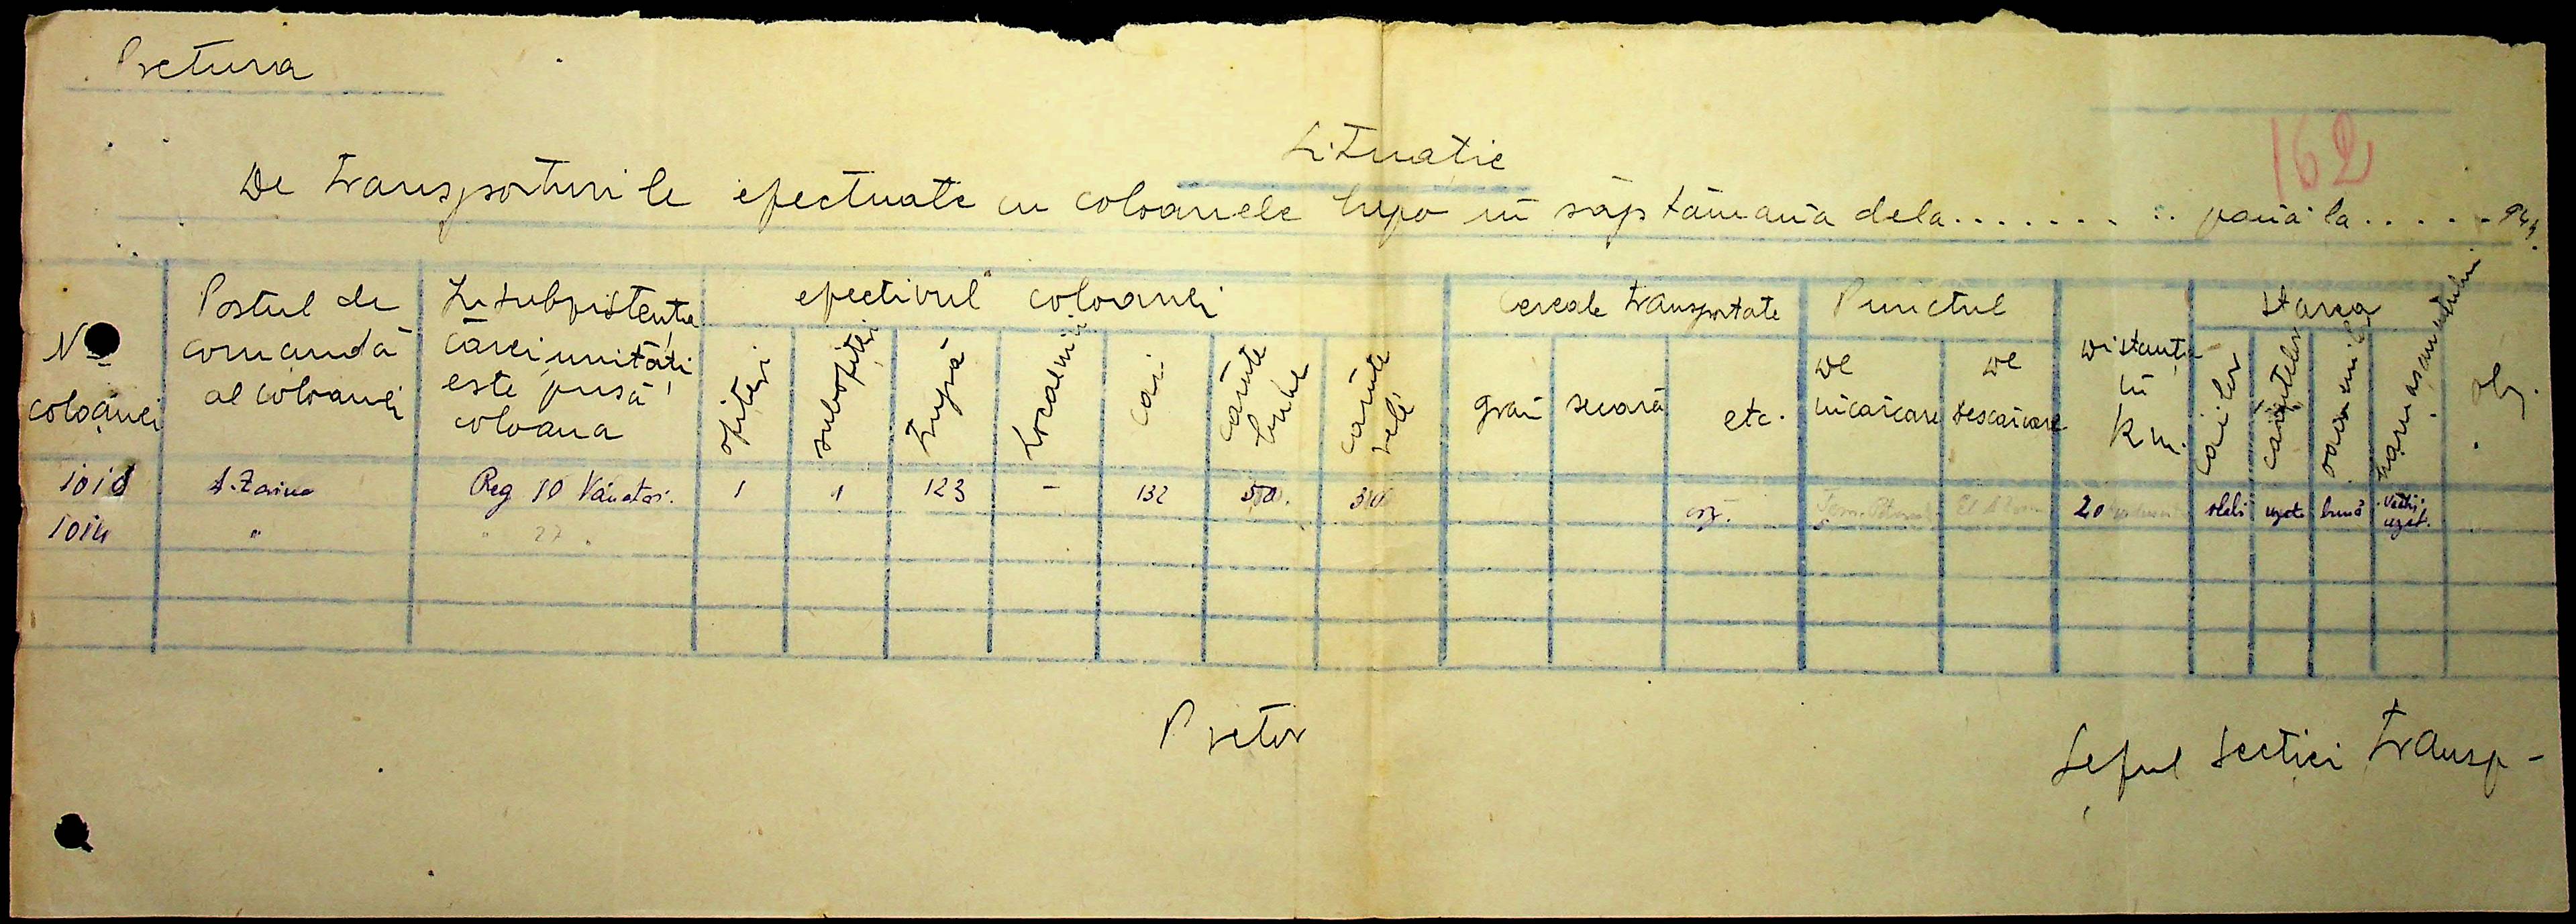 Pretura
162
Situatie
De transporturile efectuate cu coloanele hipo în săptămâna dela........ până la..... 94
No coloanei
Postul de comandă al coloanei
In subzistența cărei unități este pusă coloana
efectivul coloanei
ofițeri
subofițeri
trupă
localnici
cai
cărute bune
cărute rele
Cereale transportate
grâu
secară
etc.
Punctul
De încărcare
De descărcare
Distanța în km.
Starea
cailor
cărutelor
oamenilor
harnasamentului
obs.
Reg 10 Vânători. 1 1 123 – 132 50. 30 orz. 20 slabi uzate bună Vechi uzat.
" " 27 "
Pretor
Șeful Secției Transp-